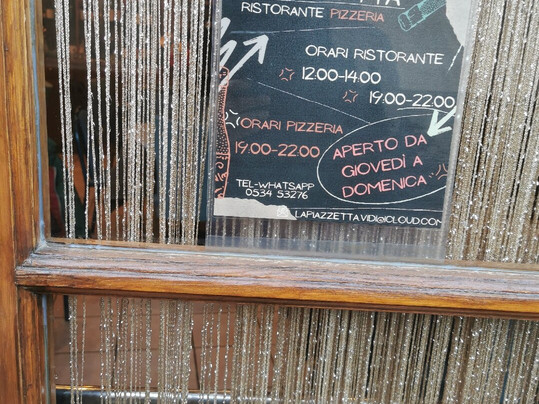 RISTORANTE PIZZERIA
ORARI RISTORANTE
12:00-14.00
19:00-22.00
ORARI PIZZERIA
19:00-22.00
APERTO DA
GIOVEDÌ A
DOMENICA
TEL-WHATSAPP
0534 53276
LAPIAZZETTAVIDI@ICLOUD.COM